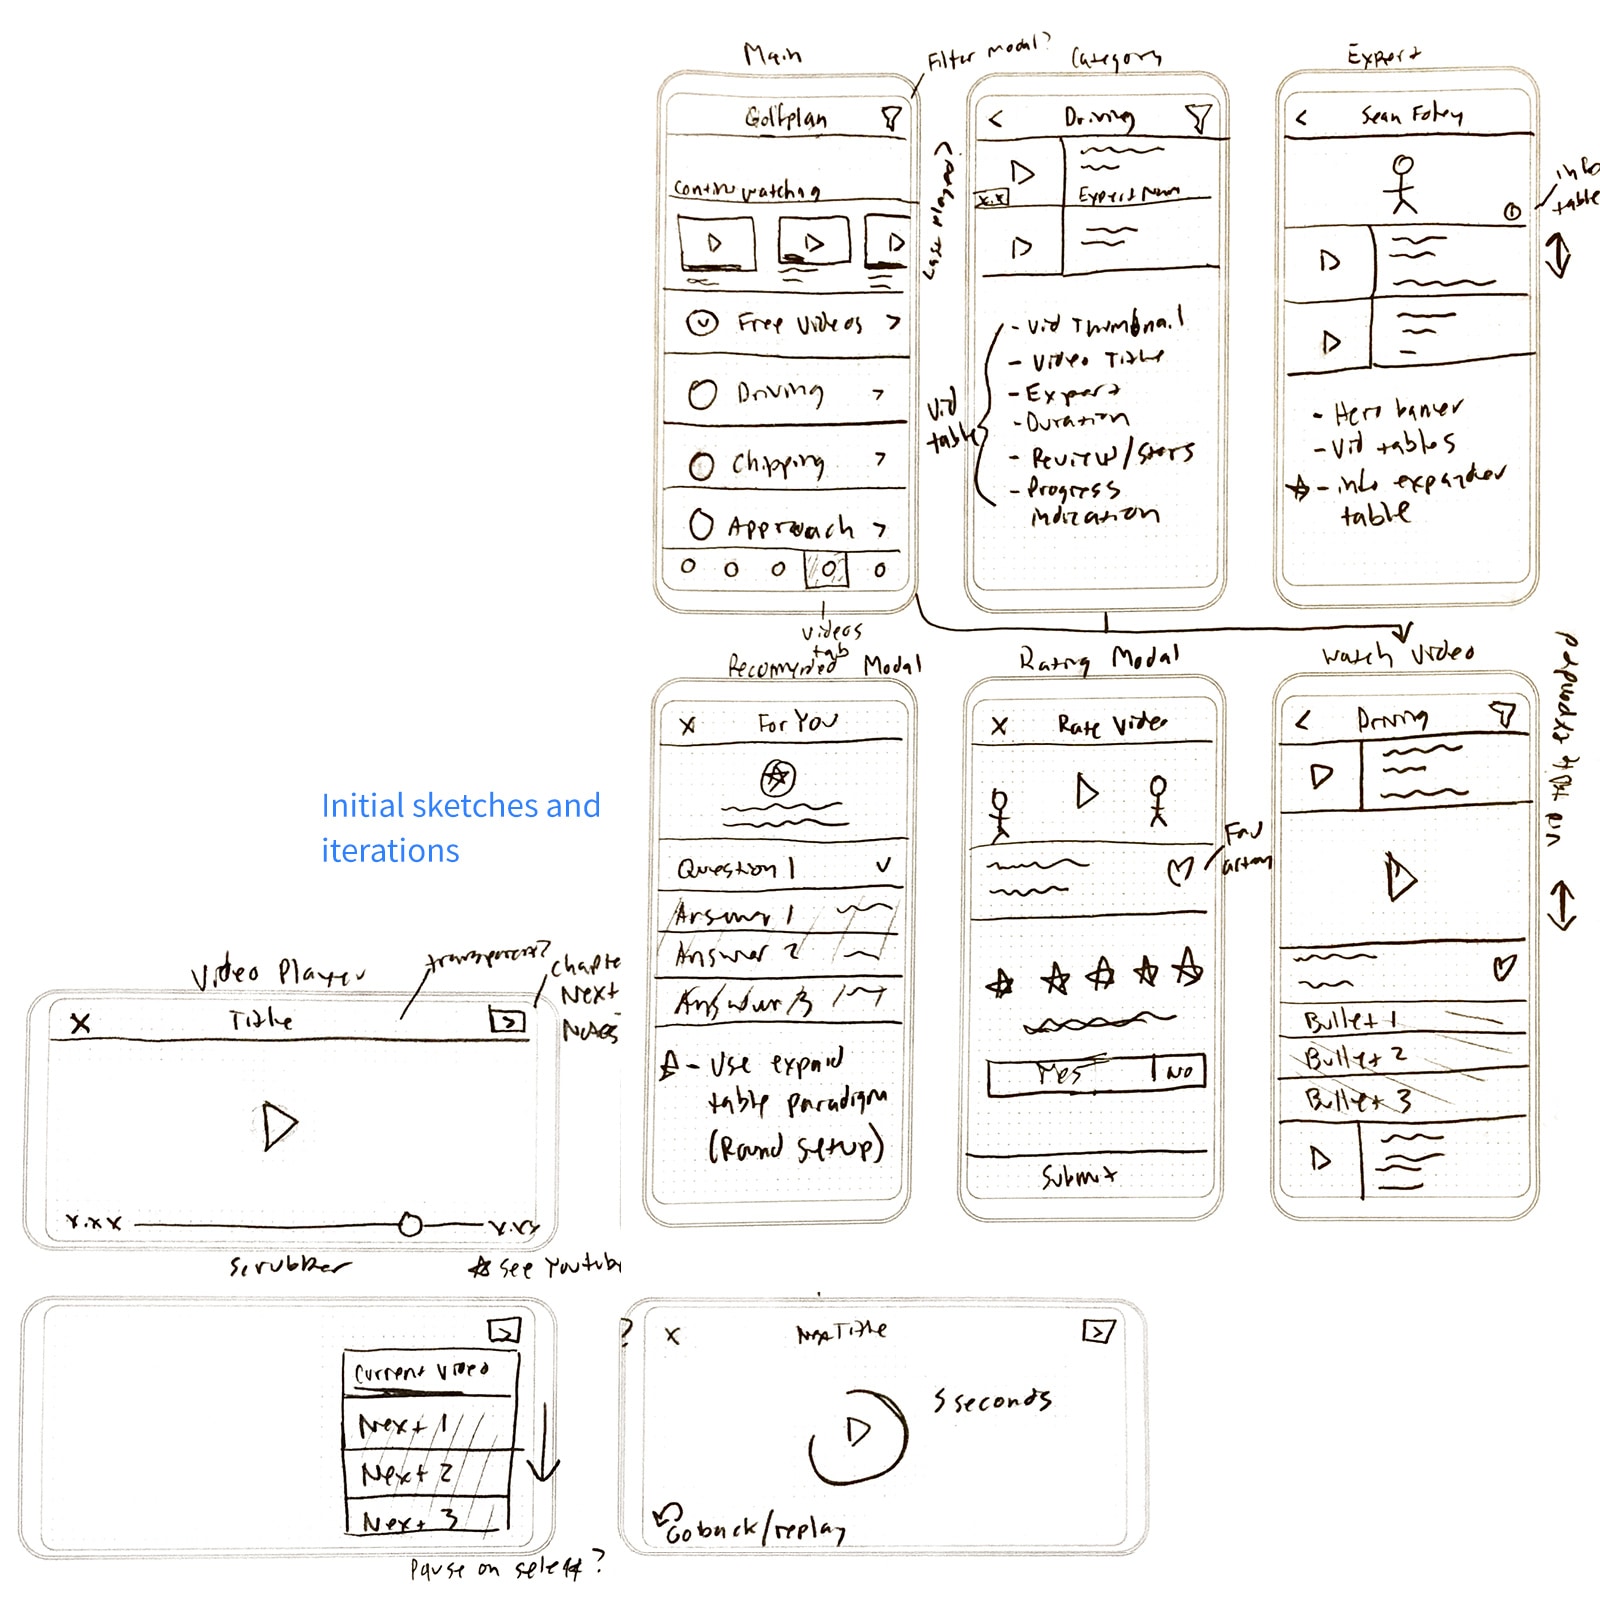 Main
Filter modal?
Category
Expert
Golfplan
Continue watching
Free Videos
Driving
Chipping
Approach
videos
tab
<
Driving
Expert Nam
x.x
Vid
table
- Vid Thumbnail
- Video Title
- Expert
- Duration
- Review/Stars
- Progress
indication
<
Sean Foley
info
table
- Hero banner
- Vid tables
- info expander
table
Recommended Modal
X
For You
Question 1
Answer 1
Answer 2
Answer 3
- Use expand
table paradigm
(Round setup)
Rating Modal
X
Rate Video
Fav
action
Yes
No
Submit
Watch Video
<
Driving
Bullet 1
Bullet 2
Bullet 3
Initial sketches and
iterations
Video Player
transparent?
Chapte
Next
Notes
X
Title
x.xx
x.xx
Scrubber
See Youtube
Current Video
Next 1
Next 2
Next 3
Pause on select?
?
X
Title
5 seconds
Go back/replay